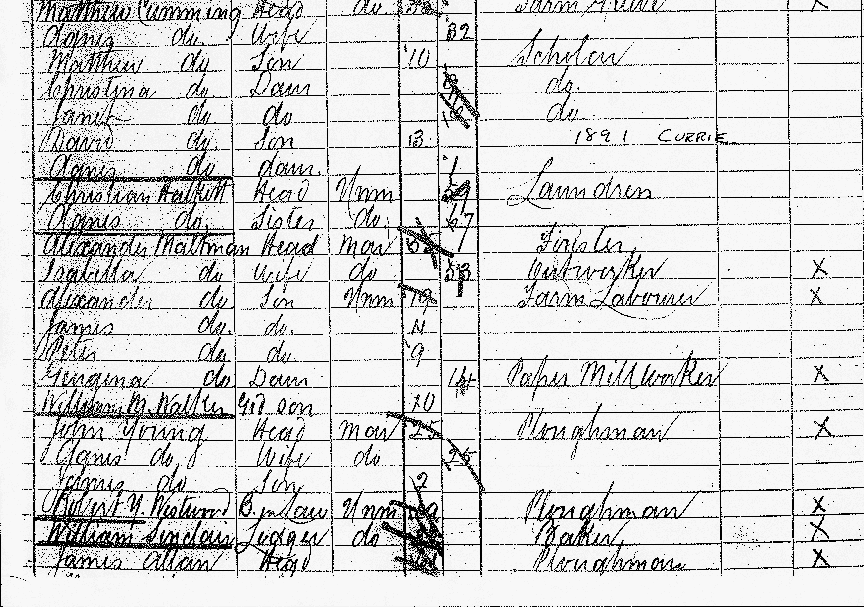 Matthew Cumming Head do Farm Grieve X
Agnes do Wife 32
Matthew do Son 10 Scholar
Christina do Daur do.
Janet do do do
David do. Son 3 1891 CURRIE
Agnes do daur. 1
Christian Halkett Head Unm 59 Laundress
Agnes do. Sister do. 47
Alexander Waltman Head Mar 55 Forester
Isabella do Wife do 53 Outworker X
Alexander do Son Unm 19 Farm Labourer X
James do. do. 11
Peter do do. 9
Georgina do Daur 14 Paper Mill Worker X
William M. Walker Gd son 10
John Young Head Mar 25 Ploughman X
Agnes do, Wife do 25
James do Son 2
Robert Y. Westwood B. in Law Unm Ploughman X
William Sinclair Lodger do Baker X
James Allan Head Ploughman X